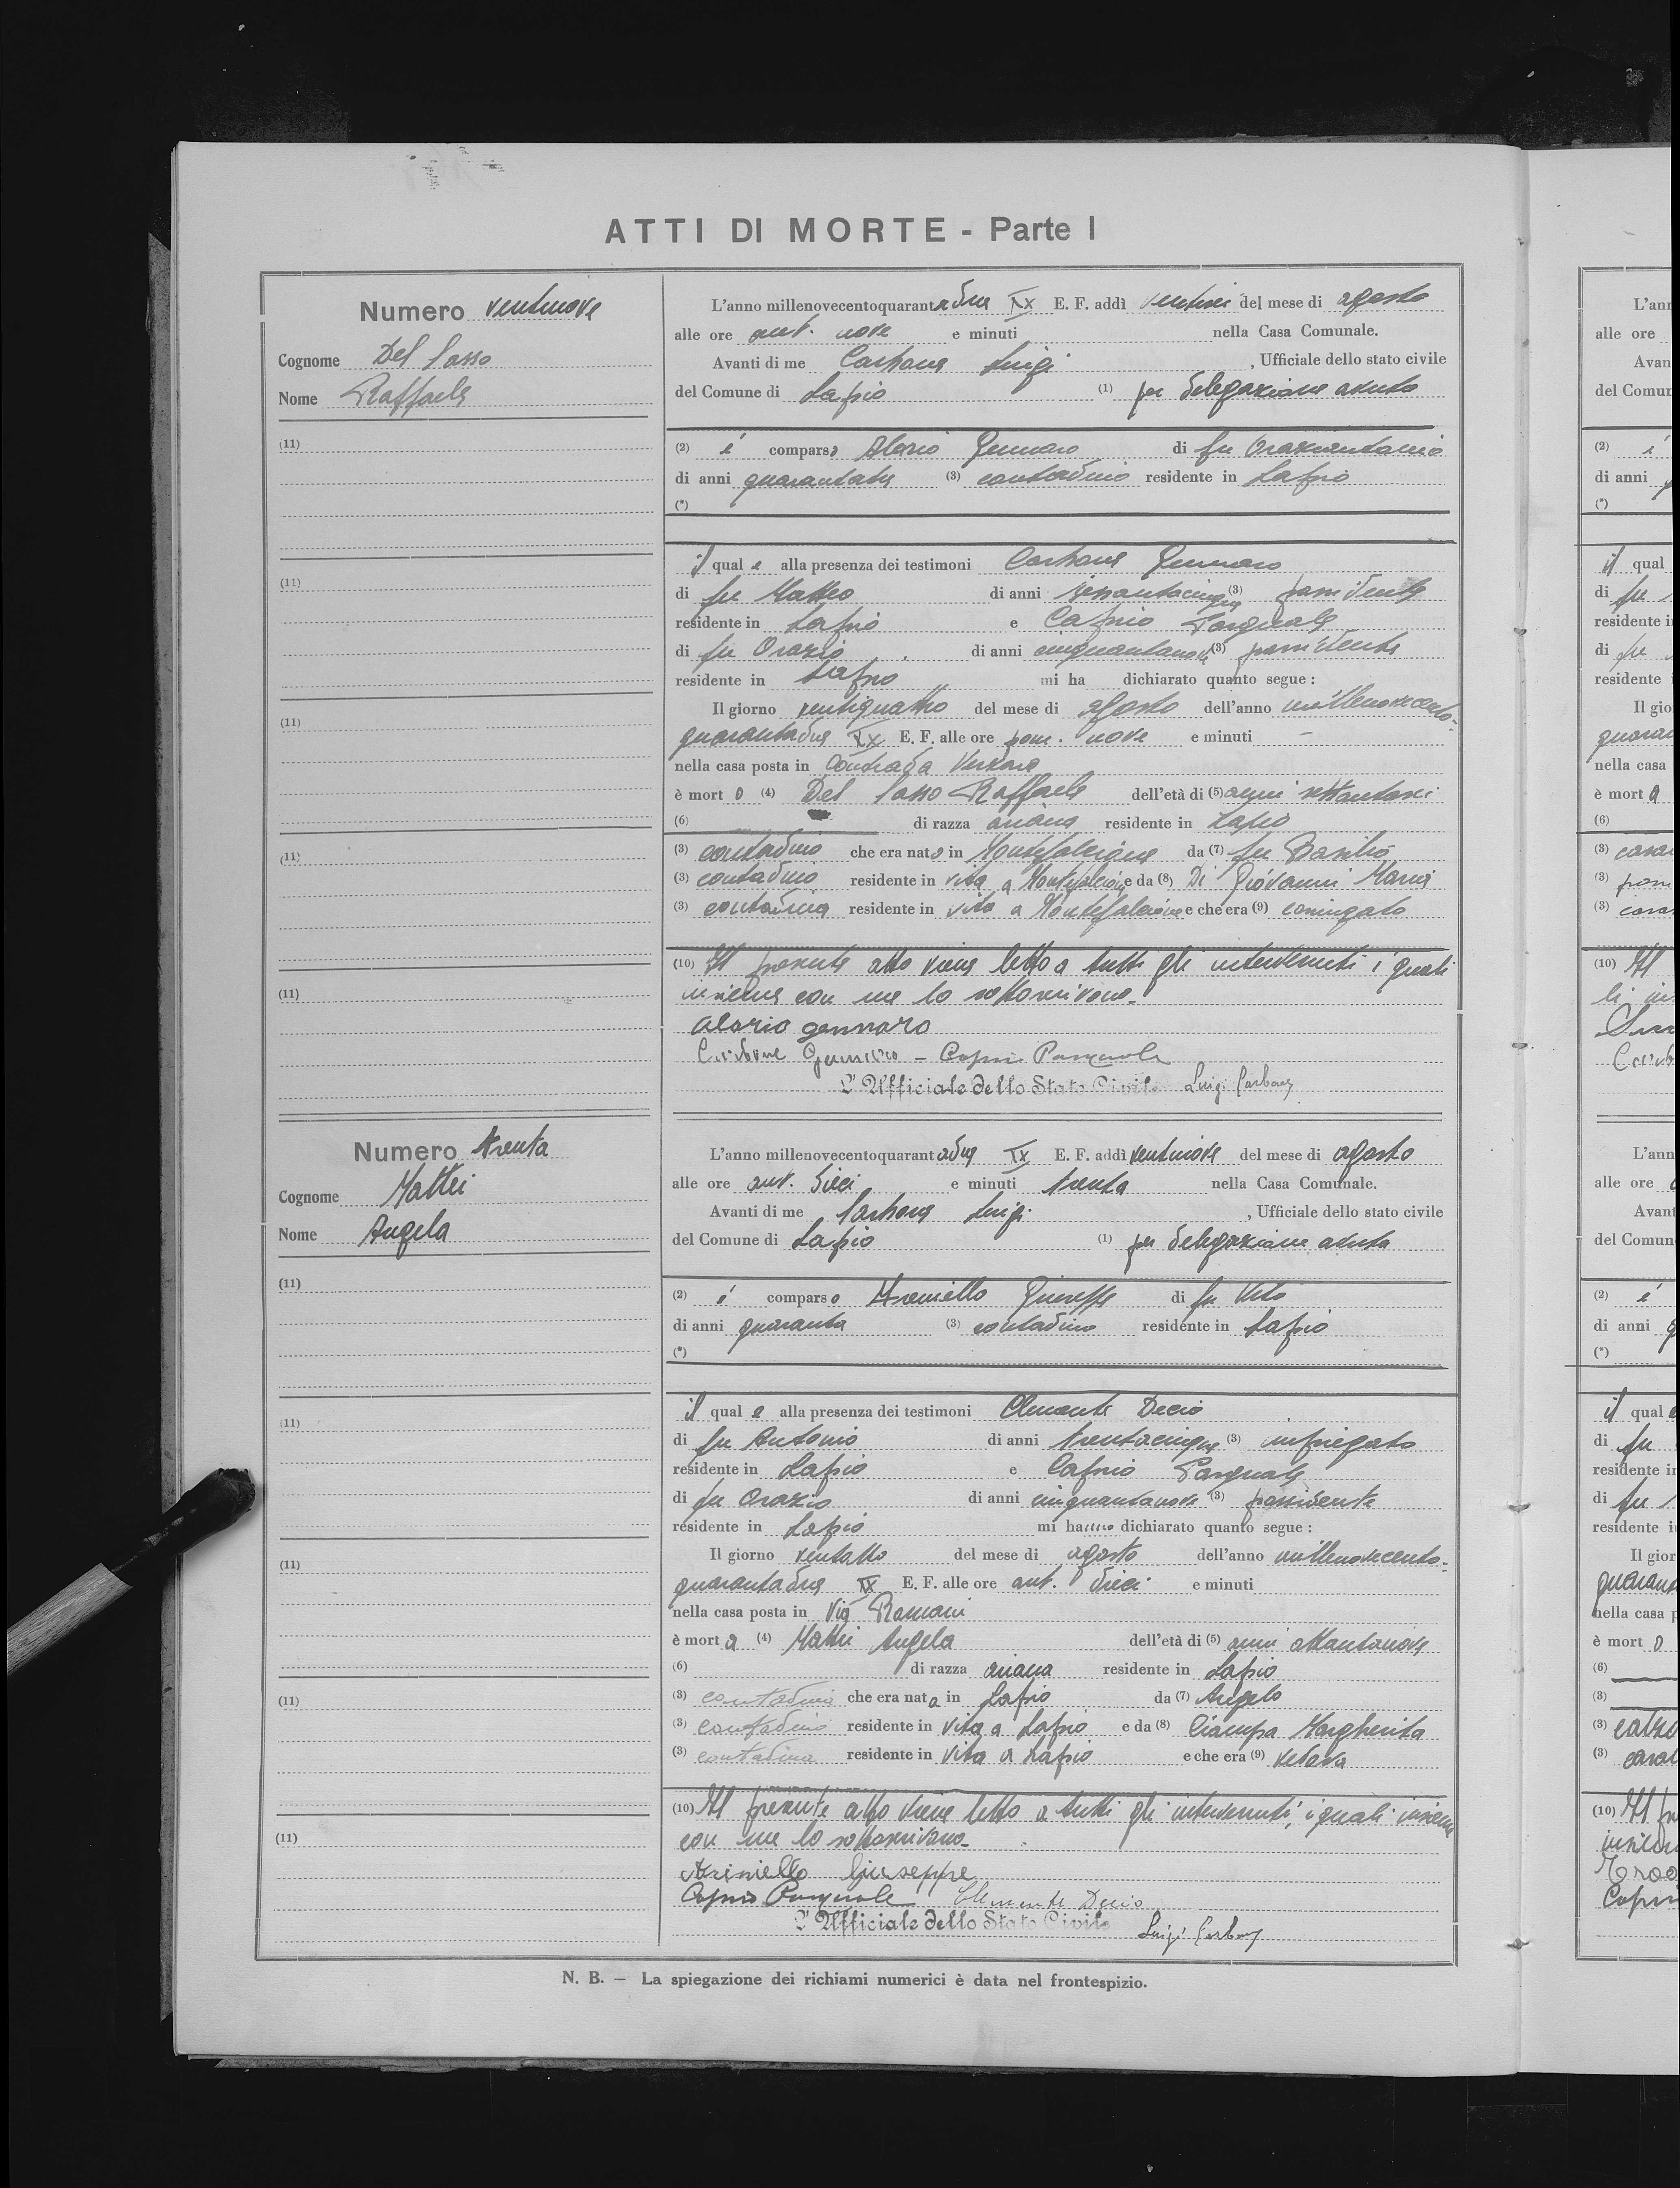 ATTI DI MORTE - Parte I
Numero ventinove
Cognome Del Sasso
Nome Raffaele
(11)
(11)
(11)
(11)
(11)
L'anno millenovecentoquarantadue XX E. F. addì ventisei del mese di agosto
alle ore ant. nove e minuti nella Casa Comunale.
Avanti di me Carbone Luigi, Ufficiale dello stato civile
del Comune di Lapio (1) per delegazione avuta
(2) è comparso Alario Gennaro di fu Oraziantonio
di anni quarantatre (3) contadino residente in Lapio
(*)
il quale alla presenza dei testimoni Carbone Gennaro
di fu Matteo di anni sessantacinque (3) possidente
residente in Lapio e Caprio Pasquale
di fu Orazio di anni cinquantanove (3) possidente
residente in Lapio mi ha dichiarato quanto segue:
Il giorno ventiquattro del mese di agosto dell'anno millenovecento-
quarantadue XX E. F. alle ore pom. nove e minuti –
nella casa posta in Contrada
è morto (4) Del Sasso Raffaele dell'età di (5) anni settantasei
(6) di razza ariana residente in Lapio
(3) contadino che era nato in Montefalcione da (7) fu Basilio
(3) contadino residente in vita a Montefalcione e da (8) Di Giovanni Maria
(3) contadina residente in vita a Montefalcione e che era (9) coniugato
(10) Il presente atto viene letto a tutti gli intervenuti i quali
insieme con me lo sottoscrivono.
Alario gennaro
Carbone Gennaro – Caprio Pasquale
L'Ufficiale dello Stato Civile Luigi Carbone
Numero trenta
Cognome Mattei
Nome Angela
(11)
(11)
(11)
(11)
(11)
L'anno millenovecentoquarantadue XX E. F. addì ventinove del mese di agosto
alle ore ant. dieci e minuti trenta nella Casa Comunale.
Avanti di me Carbone Luigi, Ufficiale dello stato civile
del Comune di Lapio (1) per delegazione avuta
(2) è comparso Giuseppe di fu Vito
di anni quaranta (3) contadino residente in Lapio
(*)
il quale alla presenza dei testimoni Clemente Decio
di fu Antonio di anni trentacinque (3) impiegato
residente in Lapio e Caprio Pasquale
di fu Orazio di anni cinquantanove (3) possidente
residente in Lapio mi hanno dichiarato quanto segue:
Il giorno ventotto del mese di agosto dell'anno millenovecento-
quarantadue XX E. F. alle ore ant. dieci e minuti
nella casa posta in Via Romani
è morta (4) Mattei Angela dell'età di (5) anni ottantanove
(6) di razza ariana residente in Lapio
(3) contadina che era nata in Lapio da (7) Angelo
(3) contadino residente in vita a Lapio e da (8) Ciampa Margherita
(3) contadina residente in vita a Lapio e che era (9) vedova
(10) Il presente atto viene letto a tutti gli intervenuti, i quali insieme
con me lo sottoscrivono.
Giuseppe
Caprio Pasquale Clemente Decio
L'Ufficiale dello Stato Civile Luigi Carbone
N. B. — La spiegazione dei richiami numerici è data nel frontespizio.